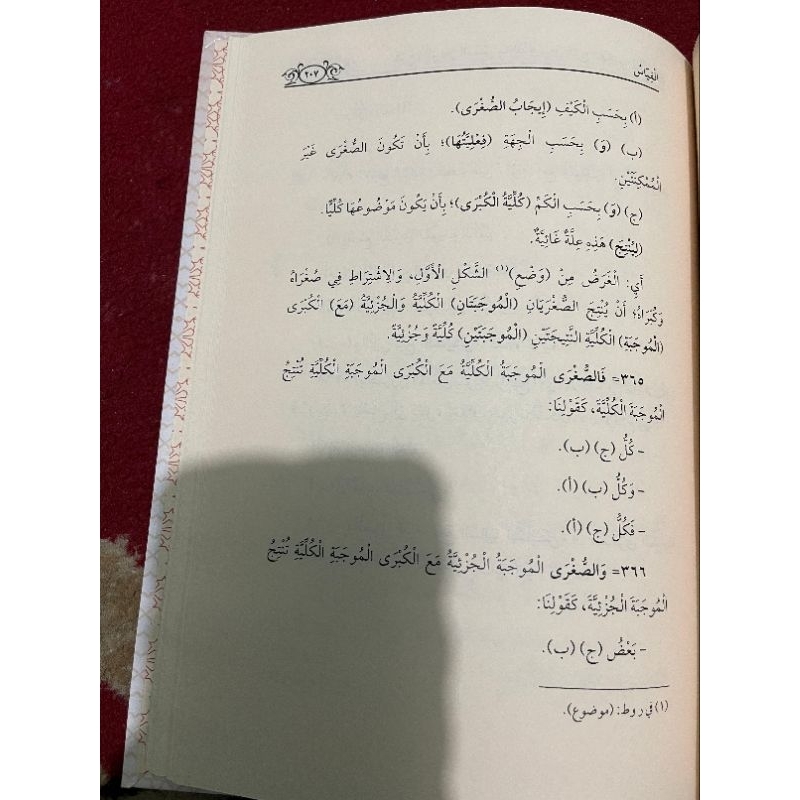 القِيَاسُ
٢٠٧
(أ) بِحَسَبِ الْكَيْفِ (إِيجَابُ الصُّغْرَى).
(ب) (وَ) بِحَسَبِ الْجِهَةِ (فِعْلِيَّتُهَا)؛ بِأَنْ تَكُونَ الصُّغْرَى غَيْرَ
الْمُمْكِنَتَيْنِ.
(ج) (وَ) بِحَسَبِ الْكَمِّ (كُلِّيَّةُ الْكُبْرَى)؛ بِأَنْ يَكُونَ مَوْضُوعُهَا كُلِّيًّا.
(لِيُنْتِجَ) هَذِهِ عِلَّةٌ غَائِيَّةٌ.
أَيِ: الْغَرَضُ مِنْ (وَضْعِ)(١) الشَّكْلِ الْأَوَّلِ، وَالِاشْتِرَاطِ فِي صُغْرَاهُ
وَكُبْرَاهُ؛ أَنْ يُنْتِجَ الصُّغْرَيَانِ (الْمُوجَبَتَانِ) الْكُلِّيَّةُ وَالْجُزْئِيَّةُ (مَعَ) الْكُبْرَى
(الْمُوجَبَةِ) الْكُلِّيَّةِ النَّتِيجَتَيْنِ (الْمُوجَبَتَيْنِ) كُلِّيَّةً وَجُزْئِيَّةً.
٣٦٥= فَالصُّغْرَى الْمُوجَبَةُ الْكُلِّيَّةُ مَعَ الْكُبْرَى الْمُوجَبَةِ الْكُلِّيَّةِ تُنْتِجُ
الْمُوجَبَةَ الْكُلِّيَّةَ، كَقَوْلِنَا:
- كُلُّ (ج) (ب).
- وَكُلُّ (ب) (أ).
- فَكُلُّ (ج) (أ).
٣٦٦= وَالصُّغْرَى الْمُوجَبَةُ الْجُزْئِيَّةُ مَعَ الْكُبْرَى الْمُوجَبَةِ الْكُلِّيَّةِ تُنْتِجُ
الْمُوجَبَةَ الْجُزْئِيَّةَ، كَقَوْلِنَا:
- بَعْضُ (ج) (ب).
(١) في روط: (موضوع).